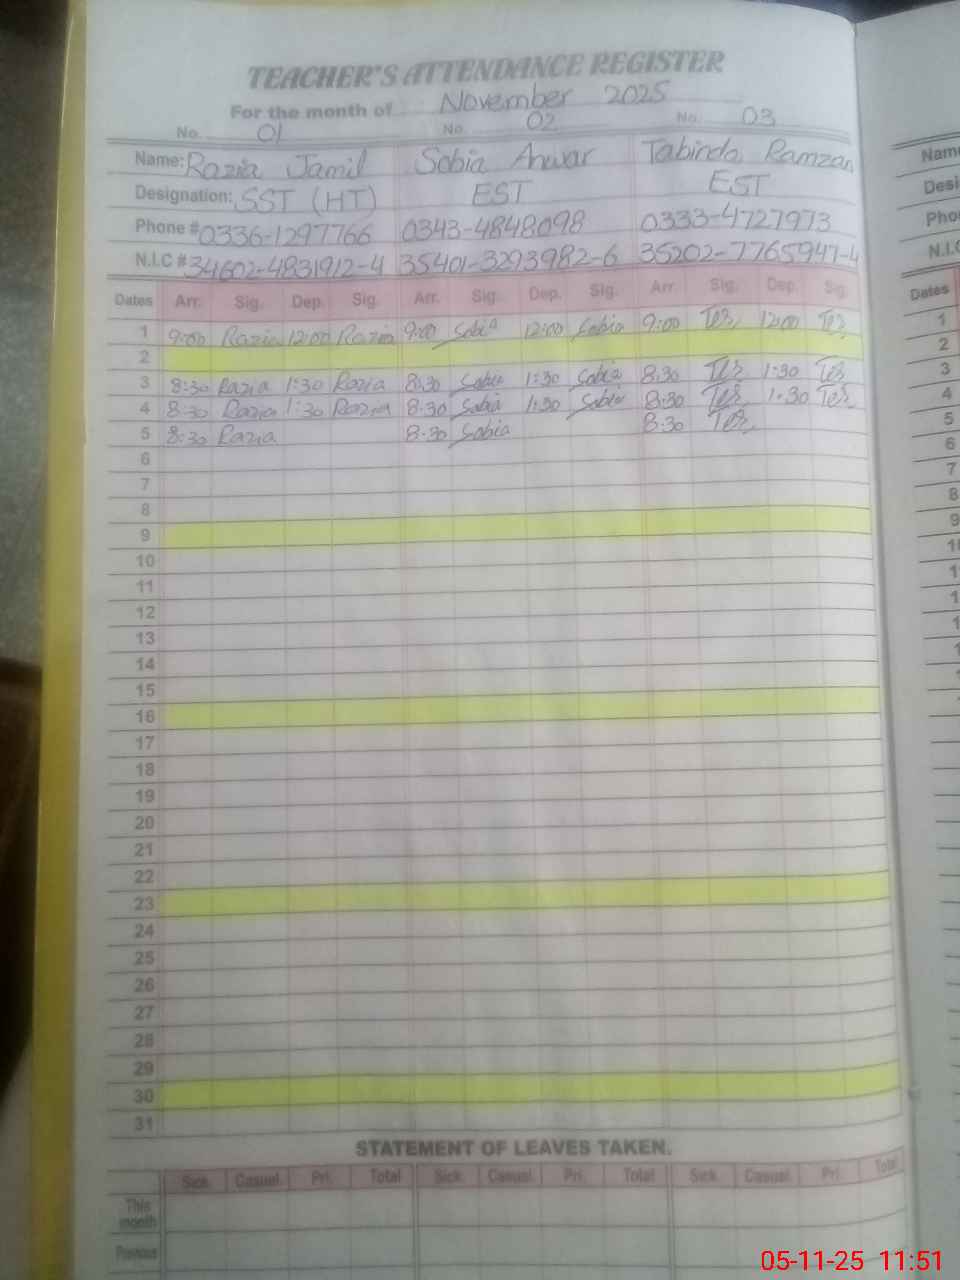 TEACHER'S ATTENDANCE REGISTER
For the month of November 2025
No. 01 No. 02 No. 03
Name: Razia Jamil Sobia Anwar Tabinda Ramzan
Designation: SST (HT) EST EST
Phone # 0336-1297766 0343-4848098 0333-4727973
N.I.C # 34602-4831912-4 35401-3293982-6 35202-7765947-4
Dates Arr. Sig. Dep. Sig. Arr. Sig. Dep. Sig. Arr. Sig. Dep. Sig.
1 9:00 Razia 12:00 Razia 9:00 Sobia 12:00 Sobia 9:00 12:00
2
3 8:30 Razia 1:30 Razia 8:30 Sobia 1:30 Sobia 8:30 1:30
4 8:30 Razia 1:30 Razia 8:30 Sobia 1:30 Sobia 8:30 1:30
5 8:30 Razia 8:30 Sobia 8:30
6
7
8
9
10
11
12
13
14
15
16
17
18
19
20
21
22
23
24
25
26
27
28
29
30
31
STATEMENT OF LEAVES TAKEN.
Sick. Casual. Pri. Total Sick. Casual. Pri. Total Sick. Casual. Pri. Total
This month
Previous
Name
Phon
N.I.C
Dates
1
2
3
4
5
6
7
8
9
10
05-11-25 11:51